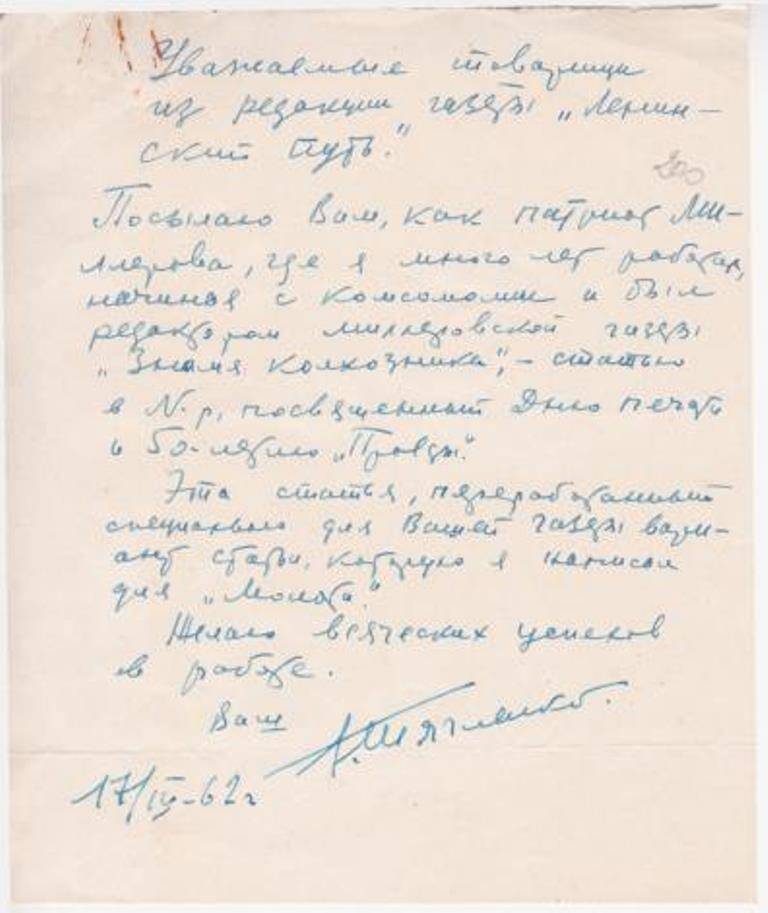 Уважаемые товарищи
из редакции газеты „Ленин-
ский путь."
200
Посылаю Вам, как патриот Мил-
лерова, где я много лет работал,
начиная с комсомолии и был
редактором миллеровской газеты
„Знамя колхозника", – статью
в N-р, посвященный Дню печати
и 50-летию „Правды".
Эта статья, переработанный
специально для Вашей газеты вари-
ант статьи, которую я написал
для „Молота."
Желаю всяческих успехов
в работе.
Ваш
17/IV-62 г